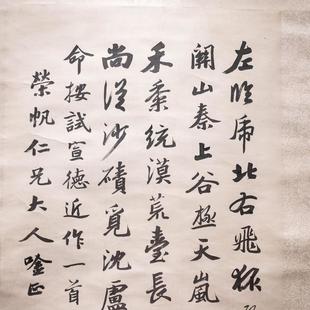 左眎虎北右飛狐
關山秦上谷極天嵐
禾黍統漠荒臺長
尚從沙磧覓沈盧
命按試宣德近作一首
榮帆仁兄大人唫正